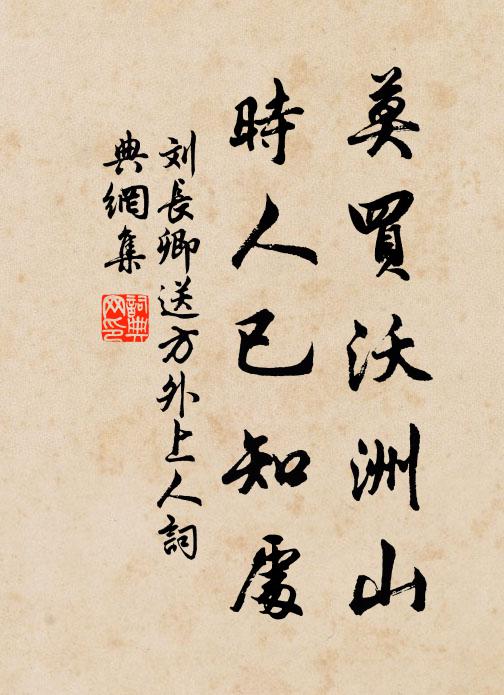 莫買沃洲山
時人已知處
刘長卿送方外上人詞
典網集
詞典網印